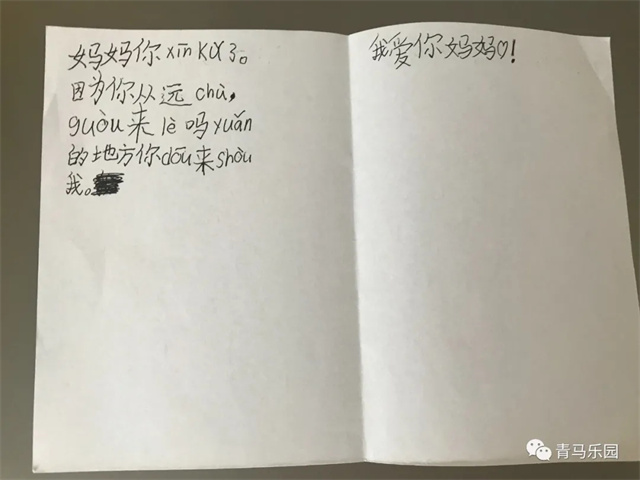 妈妈你xīn kǔ了。
因为你从远chù,
guòu来lè吗yuǎn
的地方你dōu来shòu
我。
我爱你妈妈♡!
青马乐园